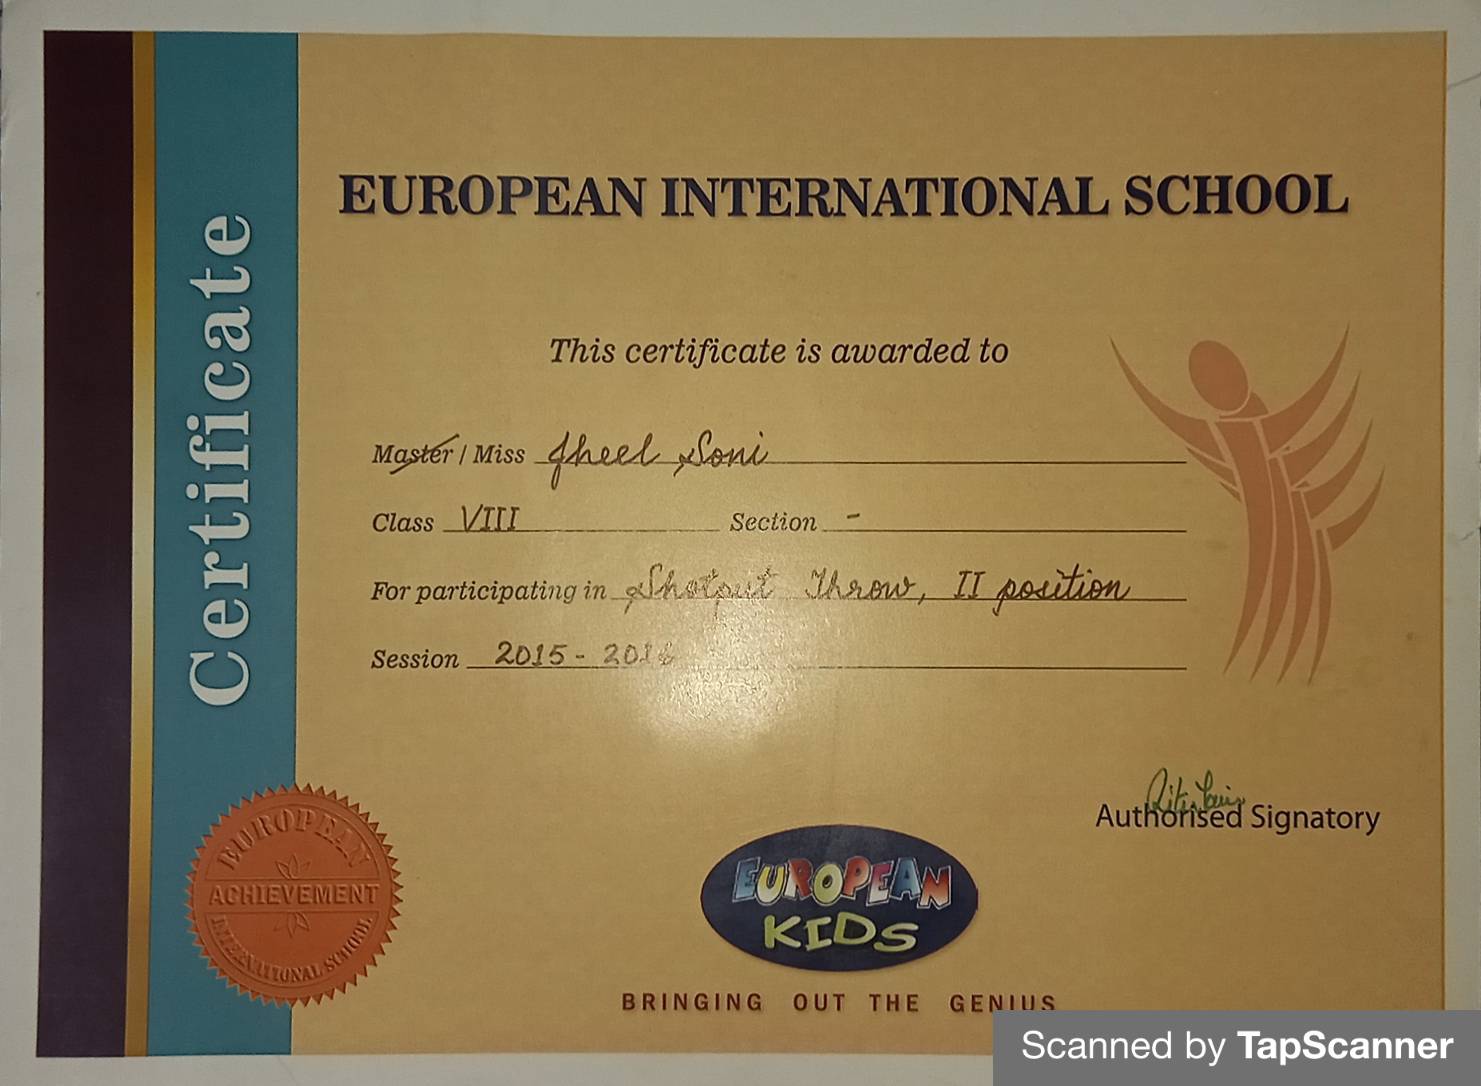 Certificate
EUROPEAN INTERNATIONAL SCHOOL
This certificate is awarded to
Master / Miss Jheel Soni
Class VIII Section -
For participating in Shotput Throw, II position
Session 2015 - 2016
Authorised Signatory
EUROPEAN
ACHIEVEMENT
INTERNATIONAL SCHOOL
EUROPEAN
KIDS
BRINGING OUT THE GENIUS
Scanned by TapScanner